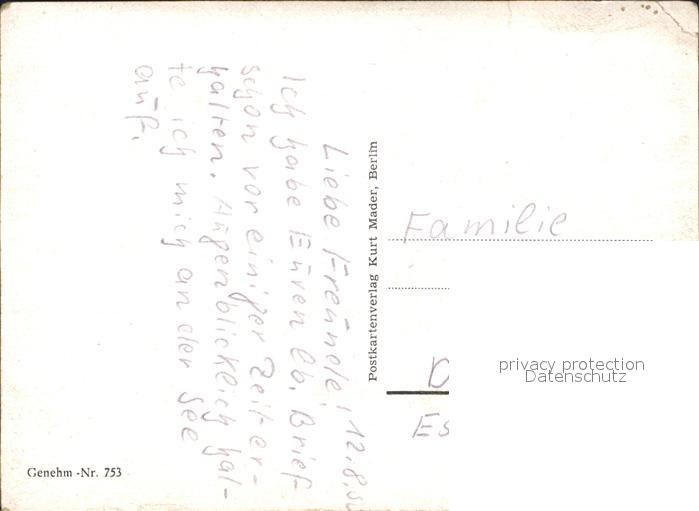 12.8.
Liebe Freunde!
Ich habe Eüren lb. Brief
schon vor einiger Zeit er-
halten. Augenblicklich hal-
te ich mich an der See
aüf.
Postkartenverlag Kurt Mader, Berlin
Familie
D
Es
privacy protection
Datenschutz
Genehm -Nr. 753